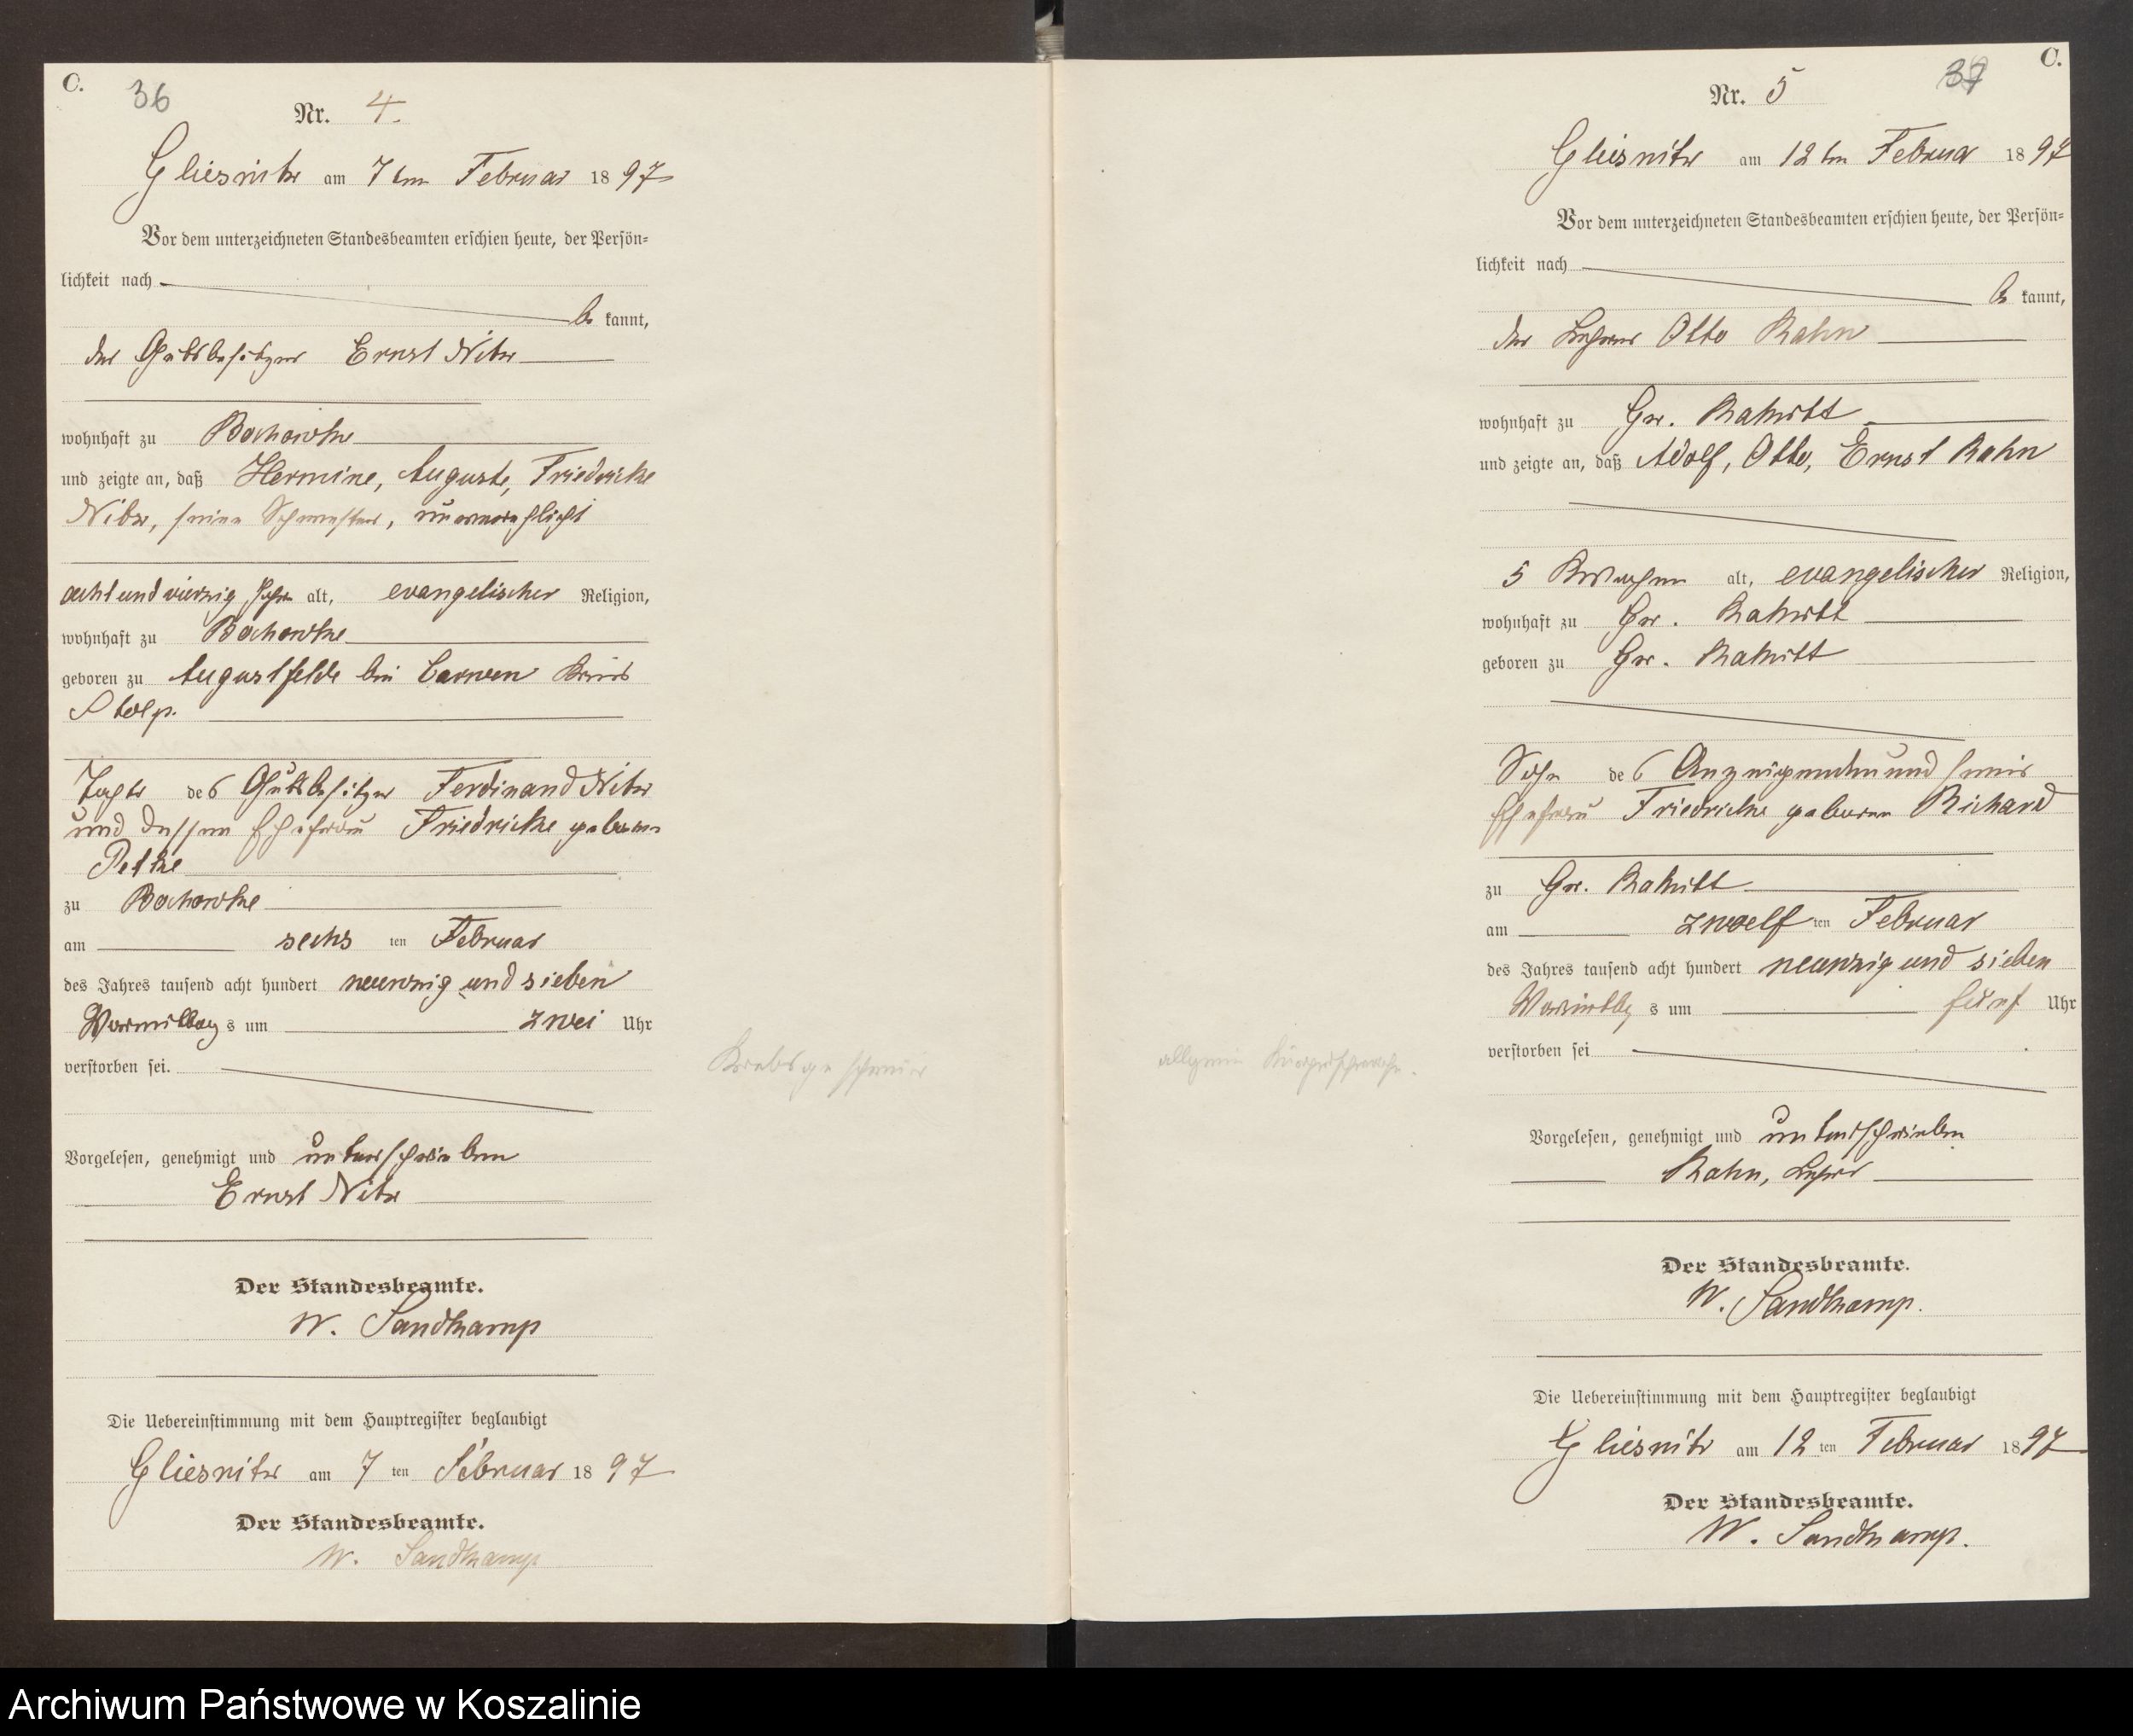 C.
36
Nr. 4.
Gliesnitz am 7ten Februar 1897
Vor dem unterzeichneten Standesbeamten erschien heute, der Persön-
lichkeit nach
be kannt,
der Gutsbesitzer Ernst Nitz
wohnhaft zu Bochowke
und zeigte an, daß Hermine, Auguste, Friedricke
Nitz, seine Schwester, unverehelicht
achtundvierzig Jahre alt, evangelischer Religion,
wohnhaft zu Bochowke
geboren zu Augustfelde bei Carwen Kreis
Stolp.
Tochter des Gutsbesitzer Ferdinand Nitz
und dessen Ehefrau Friedricke geborene
Petke
zu Bochowke
am sechs ten Februar
des Jahres tausend acht hundert neunzig und sieben
Vormittag s um zwei Uhr
verstorben sei.
Krebsgeschwür
Vorgelesen, genehmigt und unterschrieben
Ernst Nitz
Der Standesbeamte.
W. Sandkamp
Die Uebereinstimmung mit dem Hauptregister beglaubigt
Gliesnitz am 7 ten Februar 1897
Der Standesbeamte.
W. Sandkamp
C.
37
Nr. 5
Gliesnitz am 12ten Februar 1897
Vor dem unterzeichneten Standesbeamten erschien heute, der Persön-
lichkeit nach
be kannt,
der Lehrer Otto Rahn
wohnhaft zu Gr. Rakitt
und zeigte an, daß Adolf, Otto, Ernst Rahn
5 Wochen alt, evangelischer Religion,
wohnhaft zu Gr. Rakitt
geboren zu Gr. Rakitt
Sohn des Anzeigenden und seiner
Ehefrau Friedricke geborene Richard
zu Gr. Rakitt
am zwoelf ten Februar
des Jahres tausend acht hundert neunzig und sieben
Vormittag s um fünf Uhr
verstorben sei
allgemeine Körperschwäche.
Vorgelesen, genehmigt und unterschrieben
Rahn, Lehrer
Der Standesbeamte.
W. Sandkamp.
Die Uebereinstimmung mit dem Hauptregister beglaubigt
Gliesnitz am 12 ten Februar 1897
Der Standesbeamte.
W. Sandkamp.
Archiwum Państwowe w Koszalinie